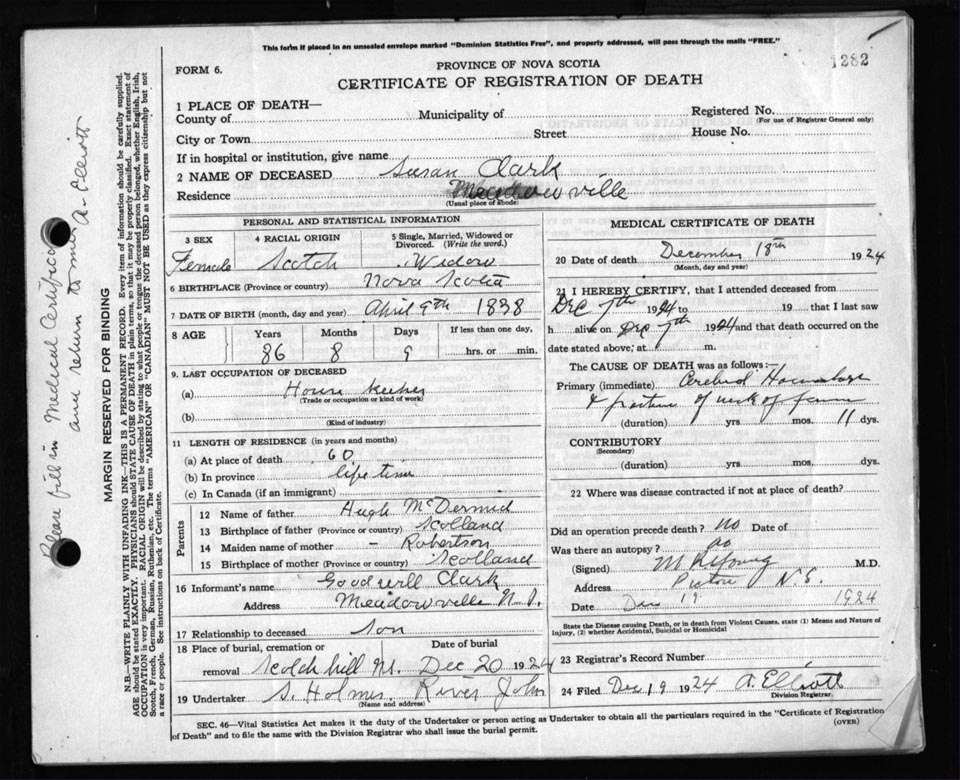 This form if placed in an unsealed envelope marked "Dominion Statistics Free", and properly addressed, will pass through the mails "FREE."
1282
FORM 6.
PROVINCE OF NOVA SCOTIA
CERTIFICATE OF REGISTRATION OF DEATH
1 PLACE OF DEATH—
County of
Municipality of
Registered No.
(For use of Registrar General only)
City or Town
Street
House No.
If in hospital or institution, give name
2 NAME OF DECEASED Susan Clark
Residence Meadowville
(Usual place of abode)
PERSONAL AND STATISTICAL INFORMATION
3 SEX
4 RACIAL ORIGIN
5 Single, Married, Widowed or Divorced. (Write the word.)
Female Scotch Widow
6 BIRTHPLACE (Province or country) Nova Scotia
7 DATE OF BIRTH (month, day and year) April 9th 1838
8 AGE Years Months Days If less than one day,
86 8 9 hrs. or min.
9. LAST OCCUPATION OF DECEASED
(a) House keeper
(Trade or occupation or kind of work)
(b)
(Kind of industry)
11 LENGTH OF RESIDENCE (in years and months)
(a) At place of death 60
(b) In province life time
(c) In Canada (if an immigrant)
Parents
12 Name of father Hugh McDermid
13 Birthplace of father (Province or country) Scotland
14 Maiden name of mother – Robertson
15 Birthplace of mother (Province or country) Scotland
16 Informant's name Goodwill Clark
Address Meadowville N.S.
17 Relationship to deceased Son
18 Place of burial, cremation or removal
Date of burial
Scotch hill Dec 20 1924
19 Undertaker S. Holmes River John
(Name and address)
MEDICAL CERTIFICATE OF DEATH
20 Date of death December 18th 1924
(Month, day and year)
21 I HEREBY CERTIFY, that I attended deceased from
Dec 7th 1924 to 19 that I last saw
h alive on Dec 7th 1924 and that death occurred on the
date stated above; at m.
The CAUSE OF DEATH was as follows:—
Primary (immediate) Cerebral Hemorrhage
& fracture of neck of femur
(duration) yrs. mos. 11 dys.
CONTRIBUTORY
(Secondary)
(duration) yrs. mos. dys.
22 Where was disease contracted if not at place of death?
Did an operation precede death? no Date of
Was there an autopsy? no
(Signed) Young M.D.
Address Pictou N.S.
Date Dec 19 1924
State the Disease causing Death, or in death from Violent Causes, state (1) Means and Nature of
Injury, (2) whether Accidental, Suicidal or Homicidal
23 Registrar's Record Number
24 Filed Dec 19 1924 A. Elliott
Division Registrar.
SEC. 46—Vital Statistics Act makes it the duty of the Undertaker or person acting as Undertaker to obtain all the particulars required in the "Certificate of Registration
of Death" and to file the same with the Division Registrar who shall issue the burial permit.
(OVER)
Please fill in Medical Certificate
and return to me A. Elliott
MARGIN RESERVED FOR BINDING
N.B.—WRITE PLAINLY WITH UNFADING INK—THIS IS A PERMANENT RECORD. Every item of information should be carefully supplied.
AGE should be stated EXACTLY. PHYSICIANS should STATE CAUSE OF DEATH in plain terms, so that it may be properly classified. Exact statement of
OCCUPATION is very important. RACIAL ORIGIN will be described by stating to what people or tongue the deceased person belonged, whether English, Irish,
Scotch, French, German, Russian, Ruthenian, etc. The terms "AMERICAN" or "CANADIAN" MUST NOT BE USED as they express citizenship but not
a race or people. See instructions on back of Certificate.